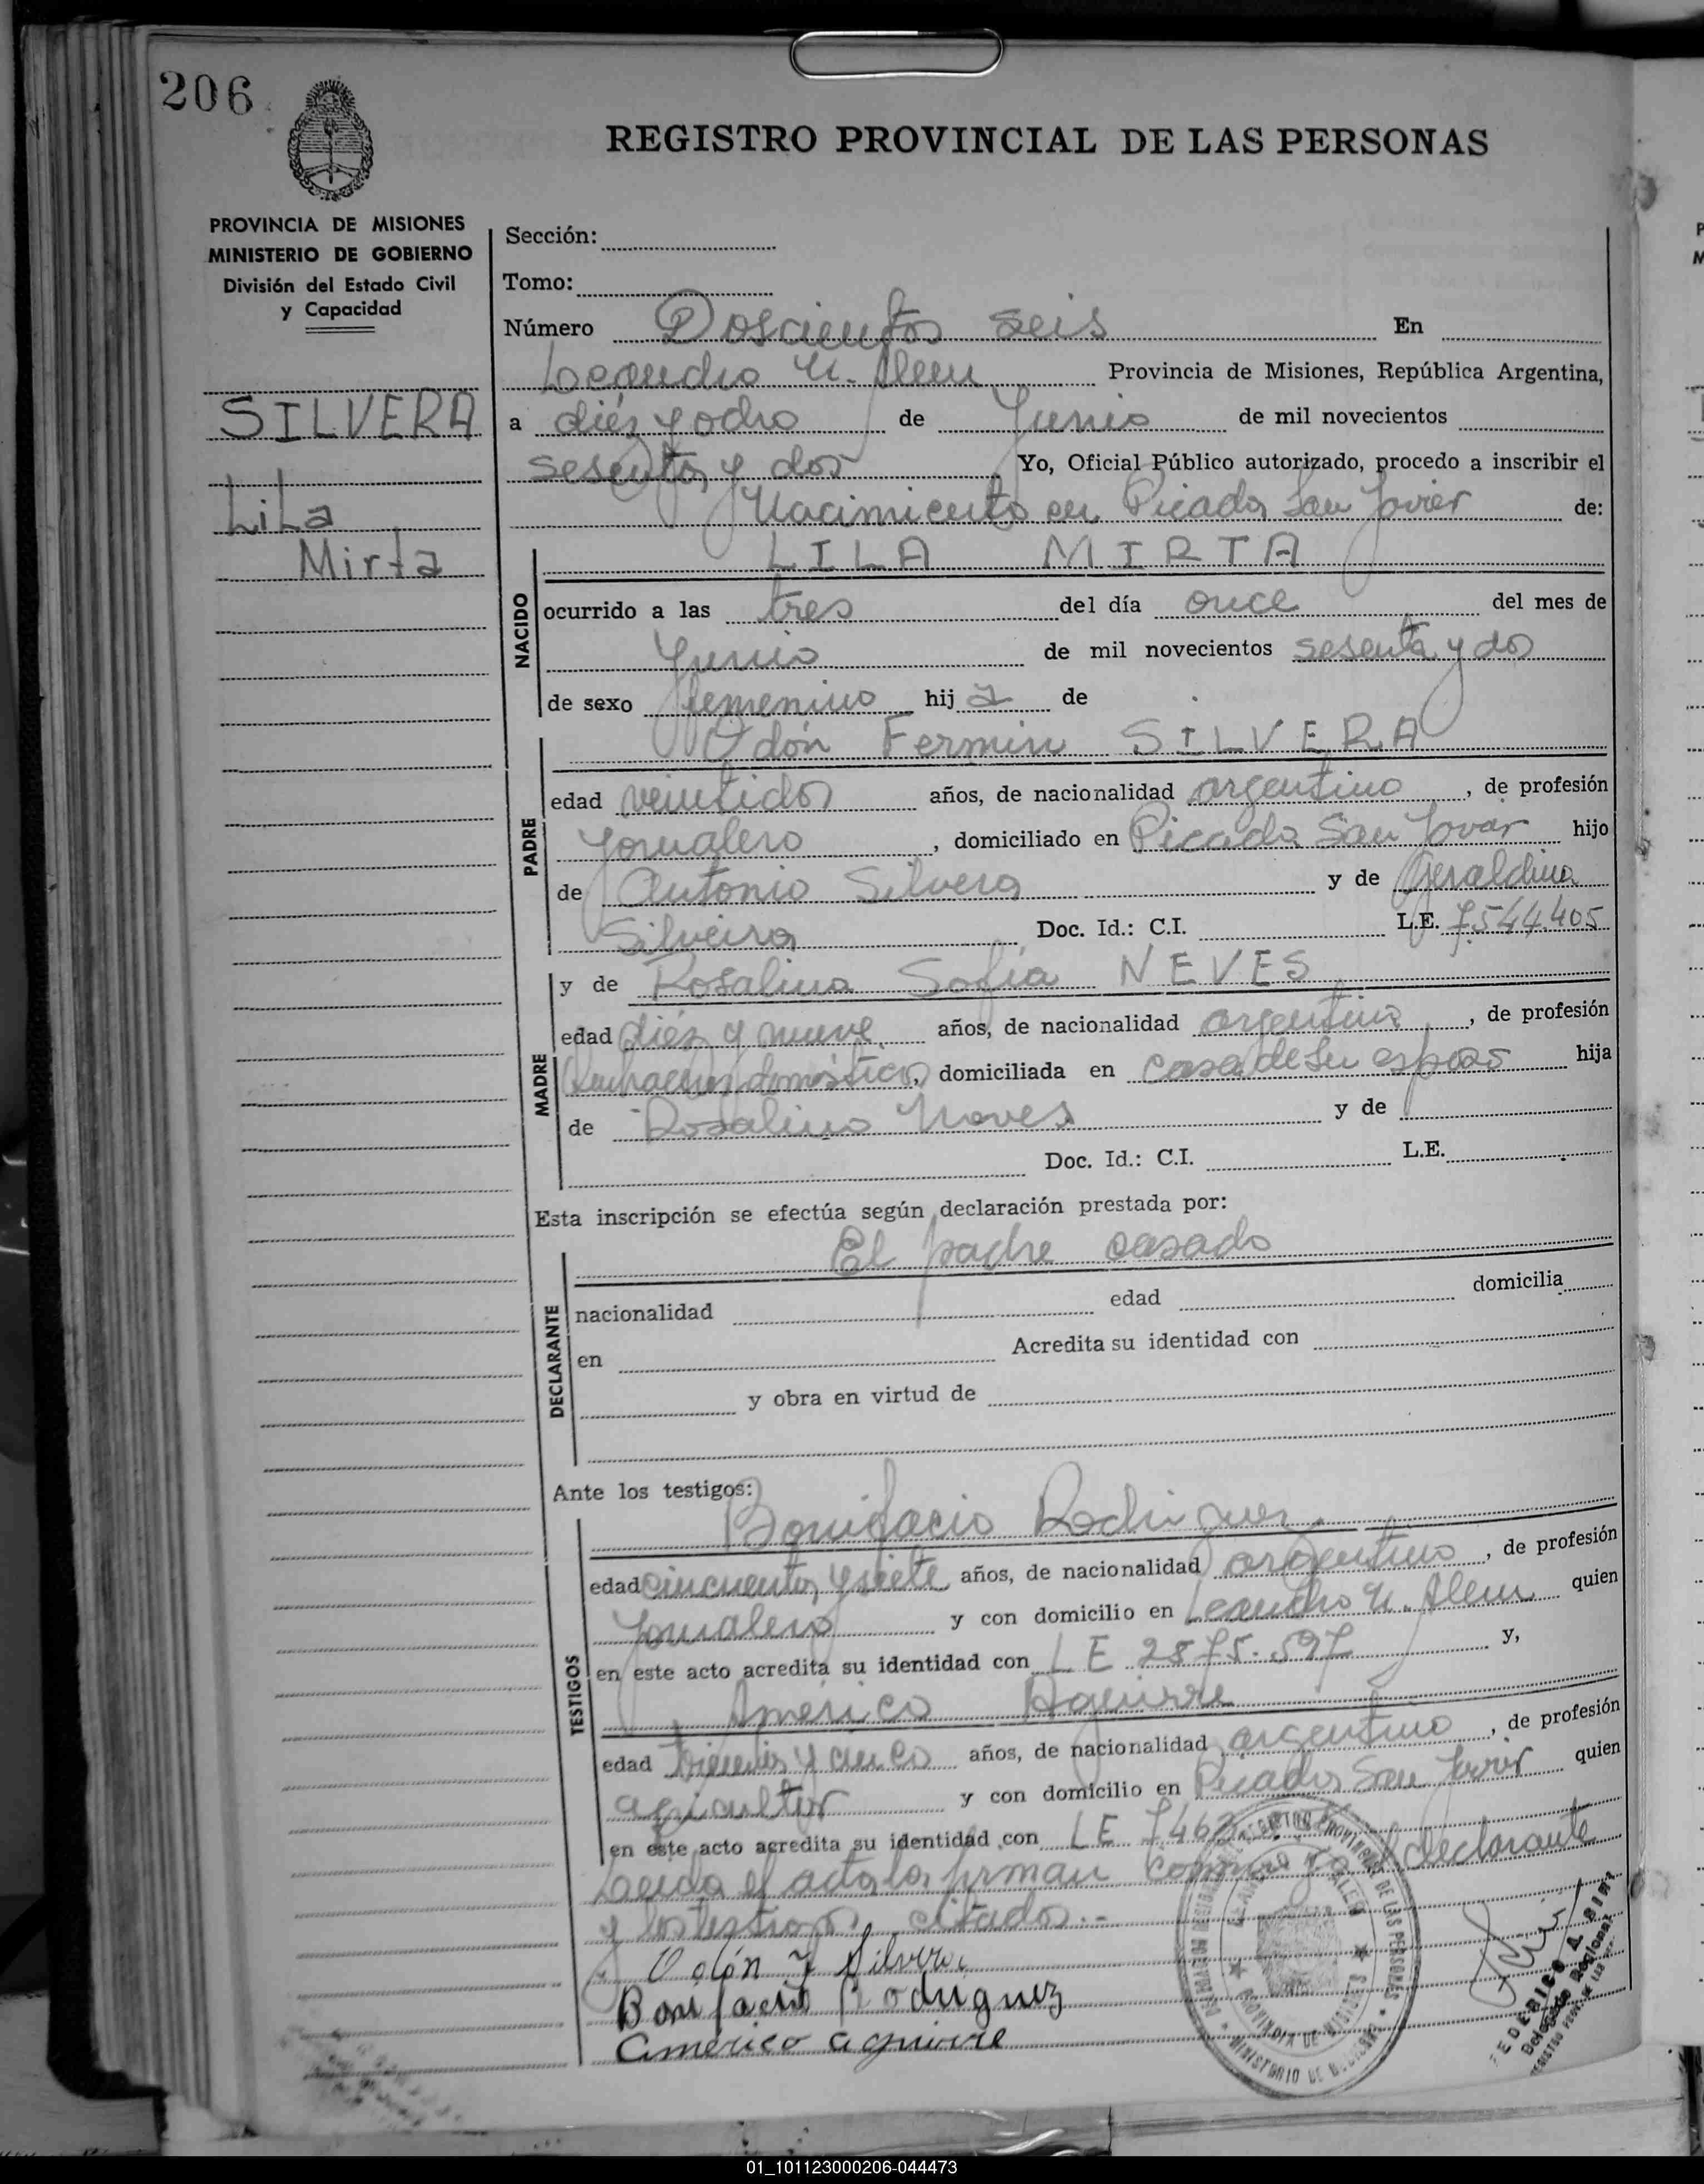 206
REGISTRO PROVINCIAL DE LAS PERSONAS
PROVINCIA DE MISIONES
MINISTERIO DE GOBIERNO
División del Estado Civil
y Capacidad
SILVERA
Lila
Mirta
Sección:
Tomo:
Número Doscientos seis En
Leandro N. Alem Provincia de Misiones, República Argentina,
a diéz y ocho de Junio de mil novecientos
sesenta y dos Yo, Oficial Público autorizado, procedo a inscribir el
Nacimiento en Picada San Javier de:
NACIDO
LILA MIRTA
ocurrido a las tres del día once del mes de
Junio de mil novecientos sesenta y dos
de sexo femenino hij a de
PADRE
Odón Fermin SILVERA
edad veintidos años, de nacionalidad argentino, de profesión
Jornalero, domiciliado en Picada San Javier hijo
de Antonio Silvera y de Geraldina
Silveira Doc. Id.: C.I. L.E. 7544.405
MADRE
y de Rosalina Sofia NEVES
edad diéz y nueve años, de nacionalidad argentina, de profesión
domiciliada en casa de su esposo hija
de Rosalino Neves y de
Doc. Id.: C.I. L.E.
Esta inscripción se efectúa según declaración prestada por:
DECLARANTE
El padre casado
nacionalidad edad domicilia
en Acredita su identidad con
y obra en virtud de
Ante los testigos:
TESTIGOS
Bonifacio Rodriguez
edad cincuenta y siete años, de nacionalidad argentino, de profesión
Jornalero y con domicilio en Leandro N. Alem quien
en este acto acredita su identidad con LE 2875.597 y,
Américo Aguirre
edad treinta y cinco años, de nacionalidad argentino, de profesión
agricultor y con domicilio en Picada San Javier quien
en este acto acredita su identidad con LE
Leida el acta la firman conmigo el declarante
y los testigos citados.-
Odón F Silvera
Bonifacio Rodriguez
américo aguirre
Delegado Regional
01_101123000206-044473